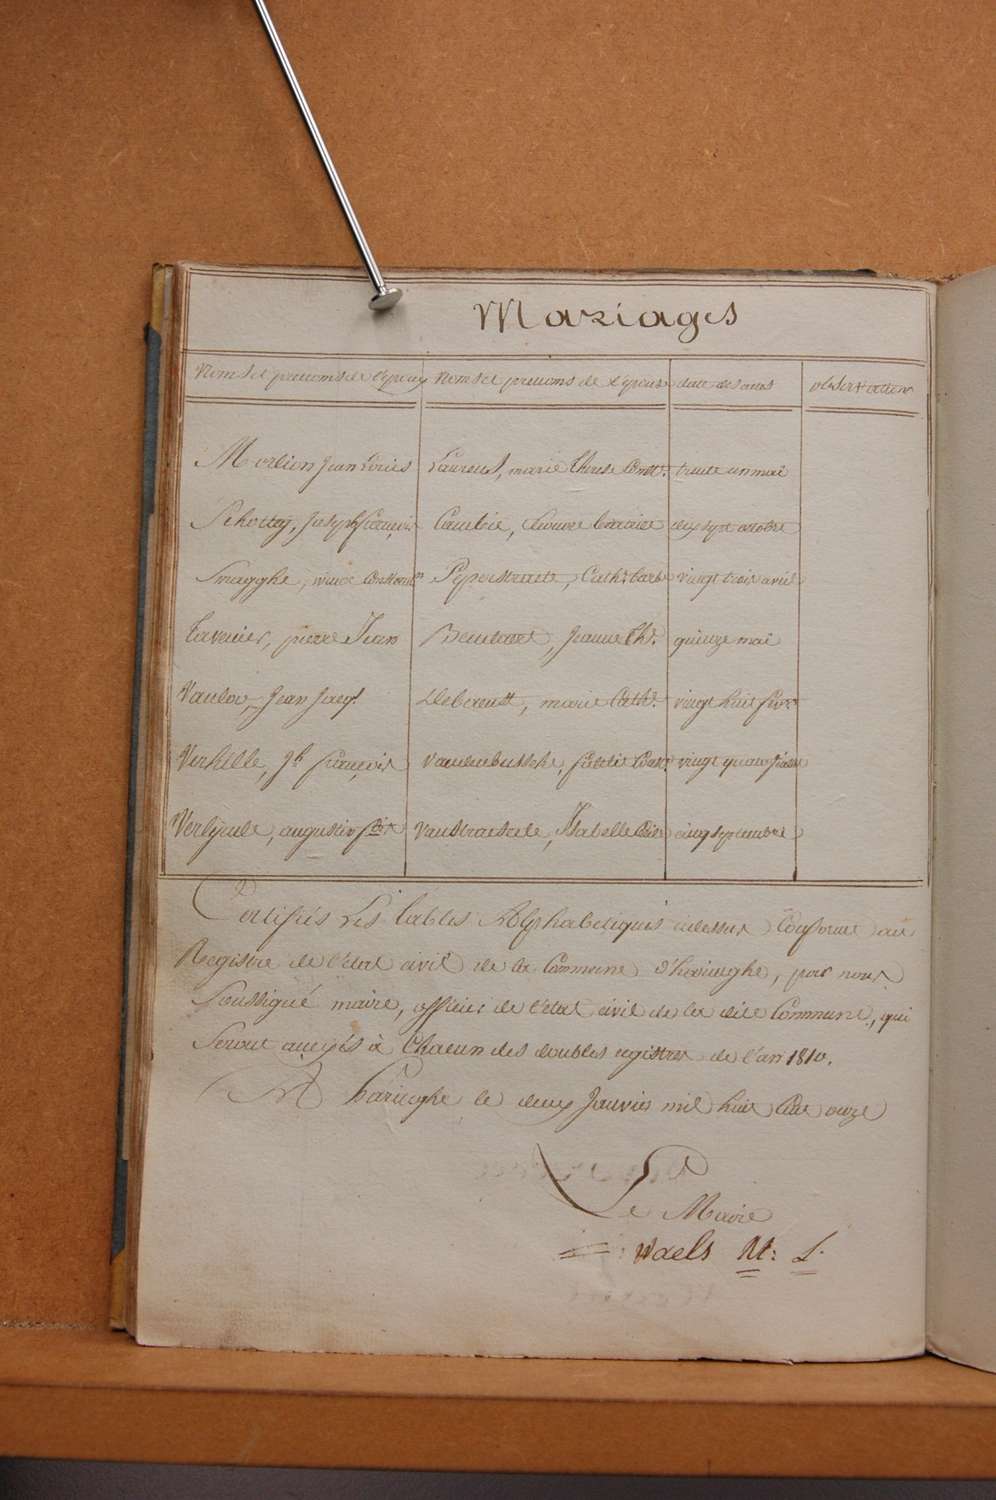 Mariages
Noms et prenoms de l'epoux Noms et prenoms de l'epouse date des actes observations
Morlion Jean Louis Laureus, marie therese Const. trente un mai
Schottey, Joseph françois Cambie, Barbe dix sept octobre
Snagghe, Peperstraete, Cath. barbe vingt trois avril
tavenier, pierre Jean Beuctavel, Jeanne th. quinze mai
Vanloo, Jean Jacq. marie Cath. vingt huit
Verhelle, Jh françois Vandenbussche, vingt quatre
Verlynde, augustin fois Vanstraesele, Isabelle cinq septembre
Certifiés Les tables Alphabetiques cidessus Conforme au
Registre de l'état civil de la Commune d'haringhe, par nous
Soussigné maire, officier de l'état civil de la dite Commune, qui
Seront anexés à Chacun des doubles registres de l'an 1810.
A haringhe le deux Janvier mil huit Cent onze
Le Maire
Waels M: L.